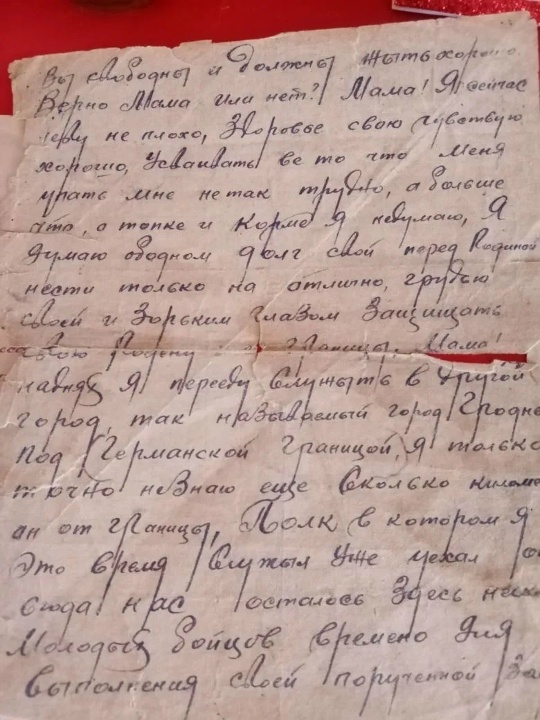 Вы свободны и должны жыть хорошо
Верно Мама или нет? Мама! Я сейчас
не плохо, Здоровье свою чувствую
хорошо, Усваивать все то что меня
мне не так трудно, а больше
что, о топке и корме я недумаю, Я
думаю ободном долг свой перед Родиной
нести только на отлично, грудью
своей и Зорьким глазом Защищать
свою Родену границы. Мама!
наднях Я перееду Служыть в другой
город, так называемый город Гродно
под Германской границой, я только
точно незнаю еще Сколько килом
он от границы, Полк в котором я
Это время Служыл уже уехал
сюда нас осталось Здесь
Молодых бойцов времено для
выполнения своей порученной За